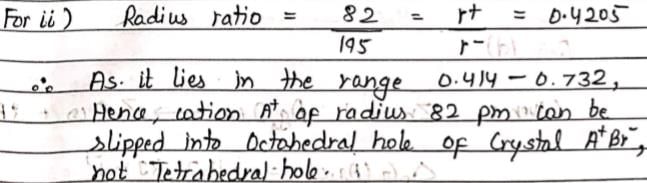 For ii) Radius ratio = 82/195 = r+/r- = 0.4205
∴ As. it lies in the range 0.414 - 0.732,
Hence, cation A+ of radius 82 pm can be
slipped into Octahedral hole of Crystal A+Br-,
not Tetrahedral hole.